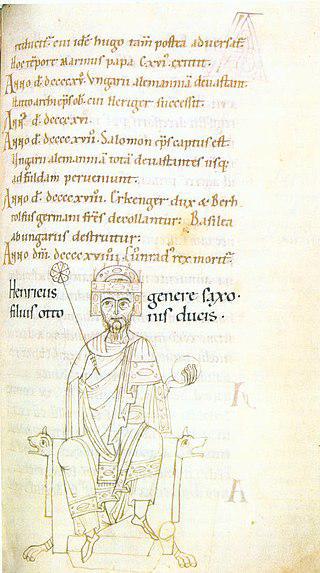 reducit᷒. cui idē hugo tam̄ postea aduersat᷒.
Hoc tēpore Marinus papa C.xv᷒. extitit.
Anno d̄. dcccc.xv. Ungarii alemanniā deuastant.
archiep̄sob. cui Heriger successit.
Ann᷒. d̄. dcccc.xvi.
Anno d̄. dcccc.xvii. Salomon ep̄s captus est.
Ungarii alemanniā totā deuastantes usq;
ad fuldam perueniunt.
Anno d̄. dcccc.xviii. Erkenger dux & Berh
tolfus germani frēs decollantur: Basilea
ab ungariis destruitur:
Anno dn̄i. dcccc.xviiii. Cunrad᷒ rex morit᷒.
Henricus genere saxo-
filius otto nis ducis.